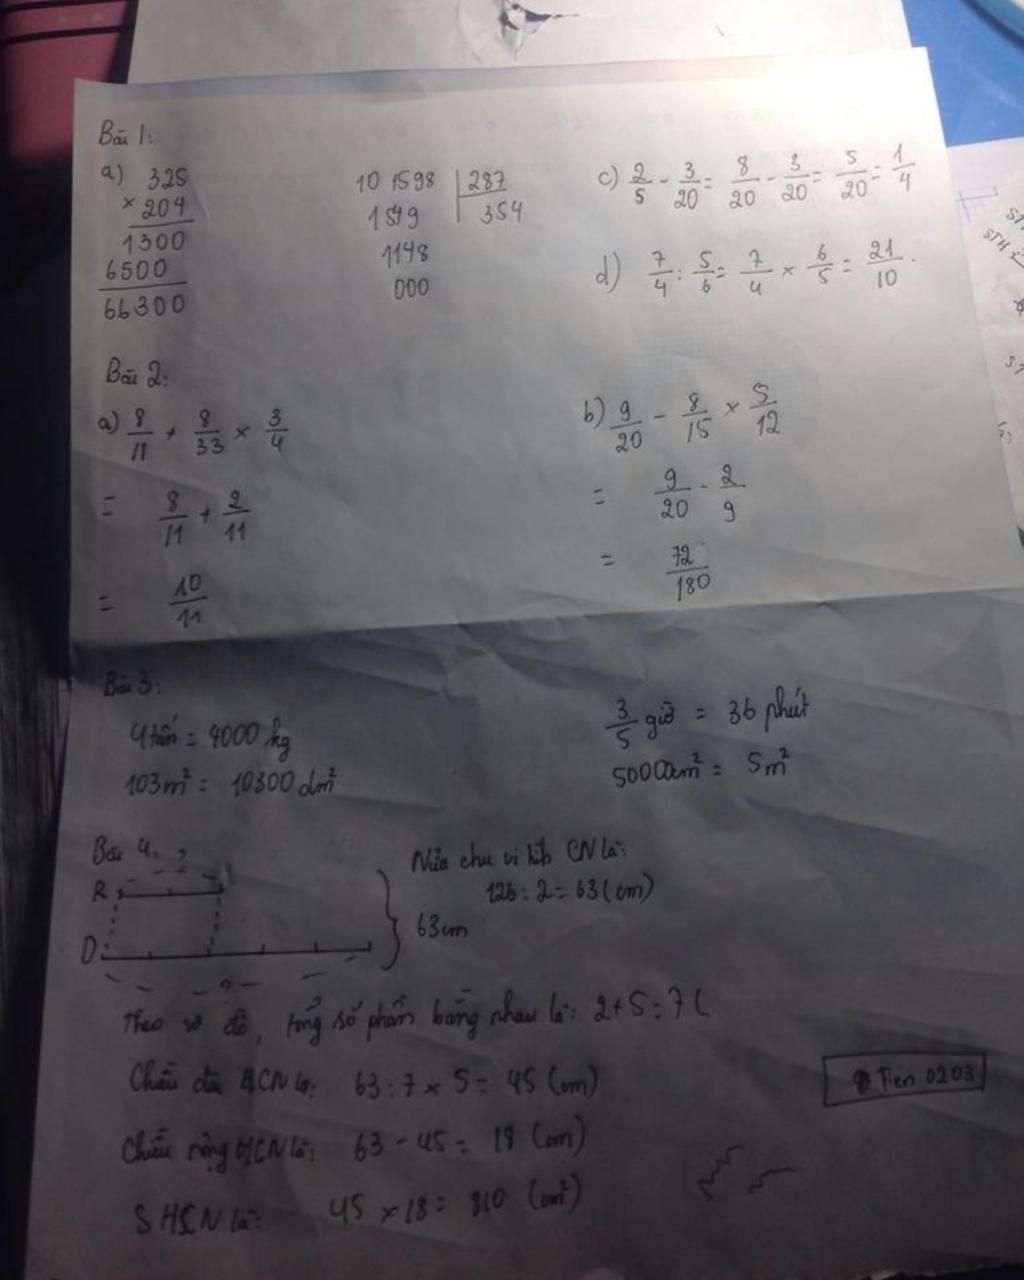 Bài 1:
a) 325
× 204
1300
6500
66300
101598 | 287
1519 354
1148
000
c) 2/5 - 3/20 = 8/20 - 3/20 = 5/20 = 1/4
d) 7/4 : 5/6 = 7/4 × 6/5 = 21/10.
Bài 2:
a) 8/11 + 8/33 × 3/4
= 8/11 + 2/11
= 10/11
b) 9/20 - 8/15 × 5/12
= 9/20 - 2/9
= 72/180
Bài 3:
4 tấn = 4000 kg
103m² = 10300 dm²
3/5 giờ = 36 phút
50000cm² = 5m²
Bài 4: ?
R
D
?
63cm
Nửa chu vi hình CN là:
126 : 2 = 63 (cm)
Theo sơ đồ, tổng số phần bằng nhau là: 2 + 5 = 7 (
Chiều dài HCN là: 63 : 7 × 5 = 45 (cm)
Chiều rộng HCN là: 63 - 45 = 18 (cm)
S HCN là: 45 × 18 = 810 (cm²)
Tien 0203
STH
STH